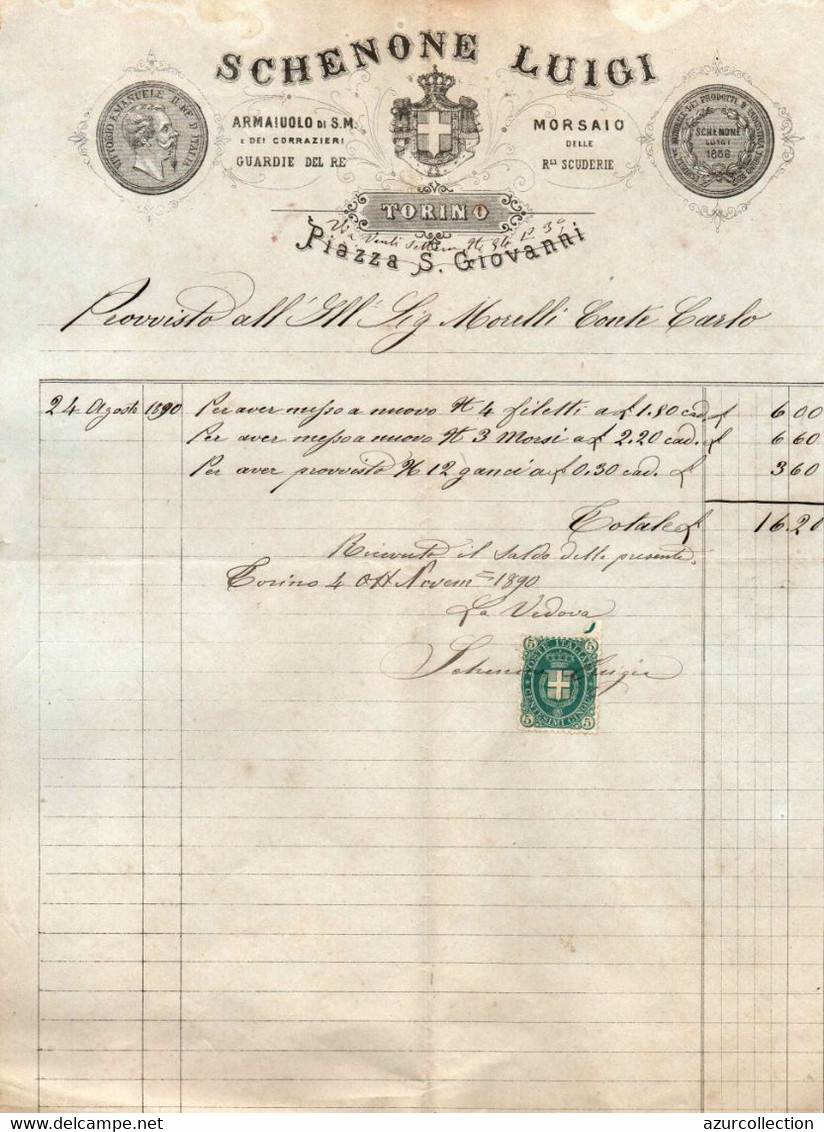 SCHENONE LUIGI
VITTORIO EMANUELE II RE D'ITALIA
ARMAIUOLO DI S.M.
E DEI CORRAZIERI
GUARDIE DEL RE
MORSAIO
DELLE
Rli SCUDERIE
SCHENONE
LUIGI
1858
TORINO
Via Venti Settem N. 84 P. 3º
Piazza S. Giovanni
Provvisto all' Ill' Sig Morelli Conte Carlo
24 Agosto 1890 Per aver messo a nuovo N 4 filetti a £ 1.80 cad. £ 6 00
Per aver messo a nuovo N 3 Morsi a £ 2.20 cad. £ 6 60
Per aver provvisto N 12 ganci a £ 0.30 cad. £ 3 60
Totale £ 16.20
Ricevuto il saldo della presente.
Torino 4 Novem 1890
La Vedova
Schenone Luigia
POSTE ITALIANE
5 5
CENTESIMI CINQUE
5 5
www.delcampe.net
azurcollection